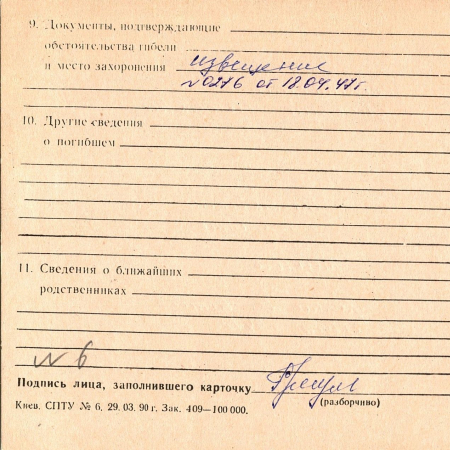 9. Документы, подтверждающие
обстоятельства гибели
и место захоронения извещение
№ 0276 от 18.04.47г.
10. Другие сведения
о погибшем
11. Сведения о ближайших
родственниках
№ 6
Подпись лица, заполнившего карточку
(разборчиво)
Киев. СПТУ № 6, 29. 03. 90 г. Зак. 409—100 000.